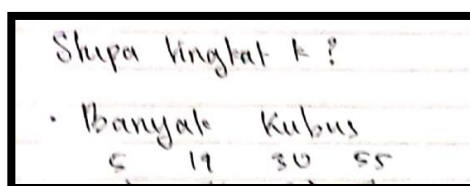 Stupa tingkat k ?
· Banyak Kubus
5 19 30 55